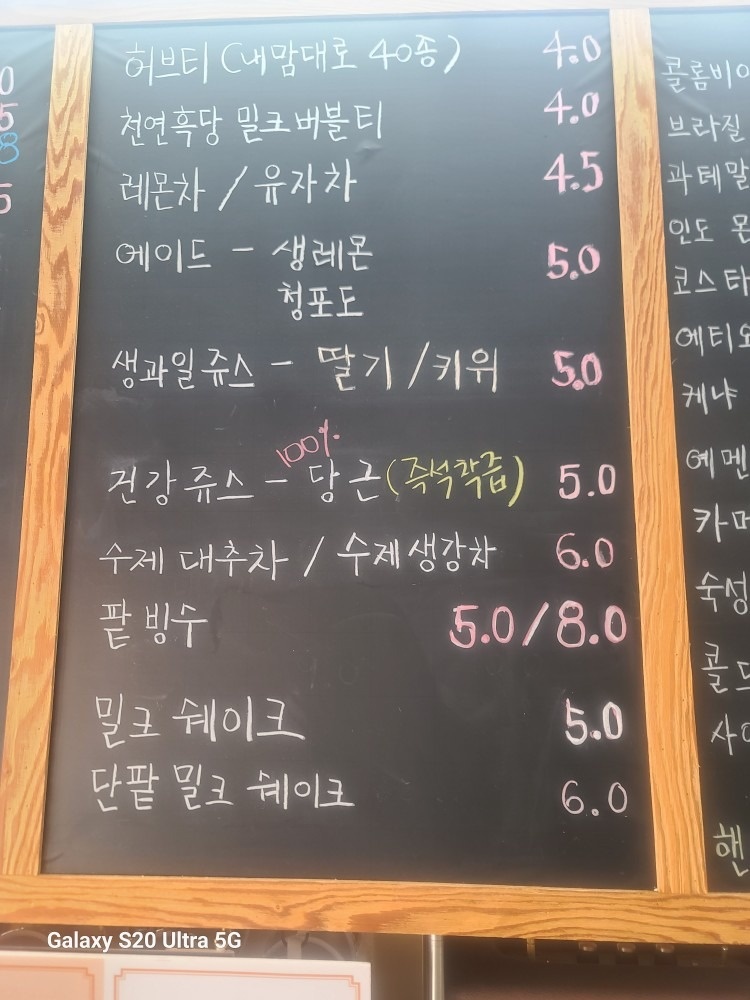 허브티 (내맘대로 40종) 4.0
천연흑당 밀크버블티 4.0
레몬차 / 유자차 4.5
에이드 - 생레몬 5.0
청포도
생과일쥬스 - 딸기 / 키위 5.0
100%
건강쥬스 - 당근 (즉석착즙) 5.0
수제 대추차 / 수제생강차 6.0
팥빙수 5.0/8.0
밀크 쉐이크 5.0
단팥 밀크 쉐이크 6.0
0
5
8
5
콜롬비아
브라질
과테말
인도 몬
코스타
에티오
케냐
예멘
카머
숙성
콜드
사이
핸
Galaxy S20 Ultra 5G